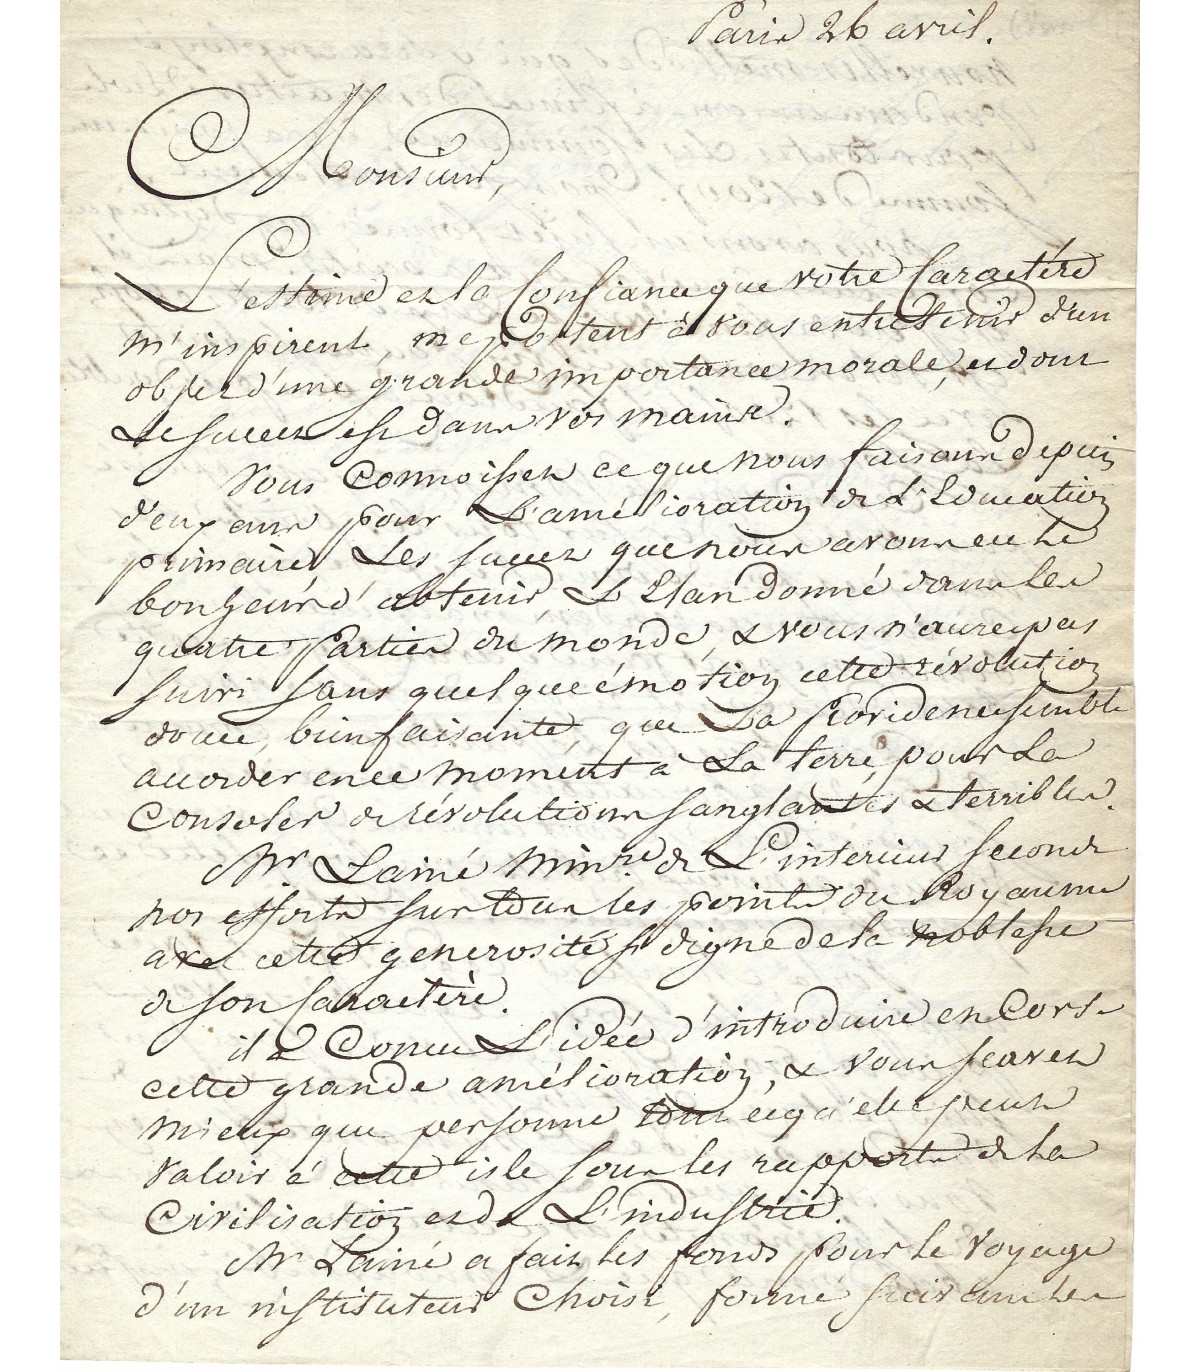 Paris 26 avril.
Monsieur,
L'estime et la Confiance que votre Caractère
m'inspirent, me portent à vous entretenir d'un
objet d'une grande importance morale, et dont
Le succes est dans vos mains.
Vous Connoissez ce que nous faisons depuis
deux ans pour L'amélioration de L'Education
primaire. Les succez que nous avons eu le
bonheur d'obtenir, L'Elan donné dans les
quatre Parties du monde, & vous n'aurez pas
suivi sans quelque émotion cette révolution
douce, bienfaisante, que La Providence semble
accorder en ce moment à La terre, pour La
Consoler de révolutions sanglantes & terribles.
Mr Lainé Minre. de L'interieur seconde
nos efforts sur tous les points du Royaume
avec cette generosité si digne de la noblesse
de son Caractère.
il a Conçu L'idée d'introduire en Corse
cette grande amélioration, & vous scavez
mieux que personne tout ce qu'elle peut
valoir à cette isle sous les rapports de la
Civilisation et de L'industrie.
Mr Lainé a fait les fonds pour le voyage
d'un instituteur Choisi, formé, suivant les